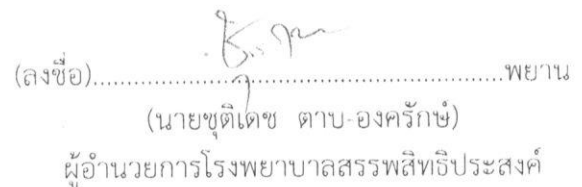 (ลงชื่อ)......................................................พยาน
(นายชุติเดช ตาบ-องครักษ์)
ผู้อำนวยการโรงพยาบาลสรรพสิทธิประสงค์